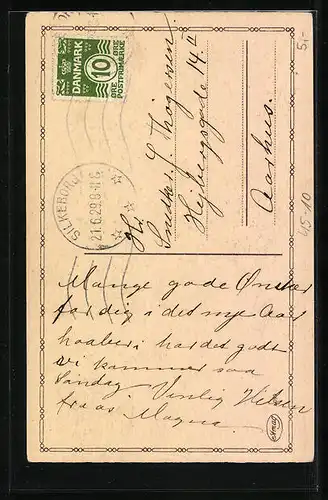 DANMARK
10
ØRE ØRE
POSTFRIMÆRKE
SILKEBORG
21.6.29.8-11 F
5,-
45-10
Hr.
Thøgersen
Hejbergsgade 14 II
Aarhus.
Mange gode Ønsker
for dig i det nye Aar
haaber i har det godt
vi kommer saa
Søndag Venlig Hilsen
fra os Magna